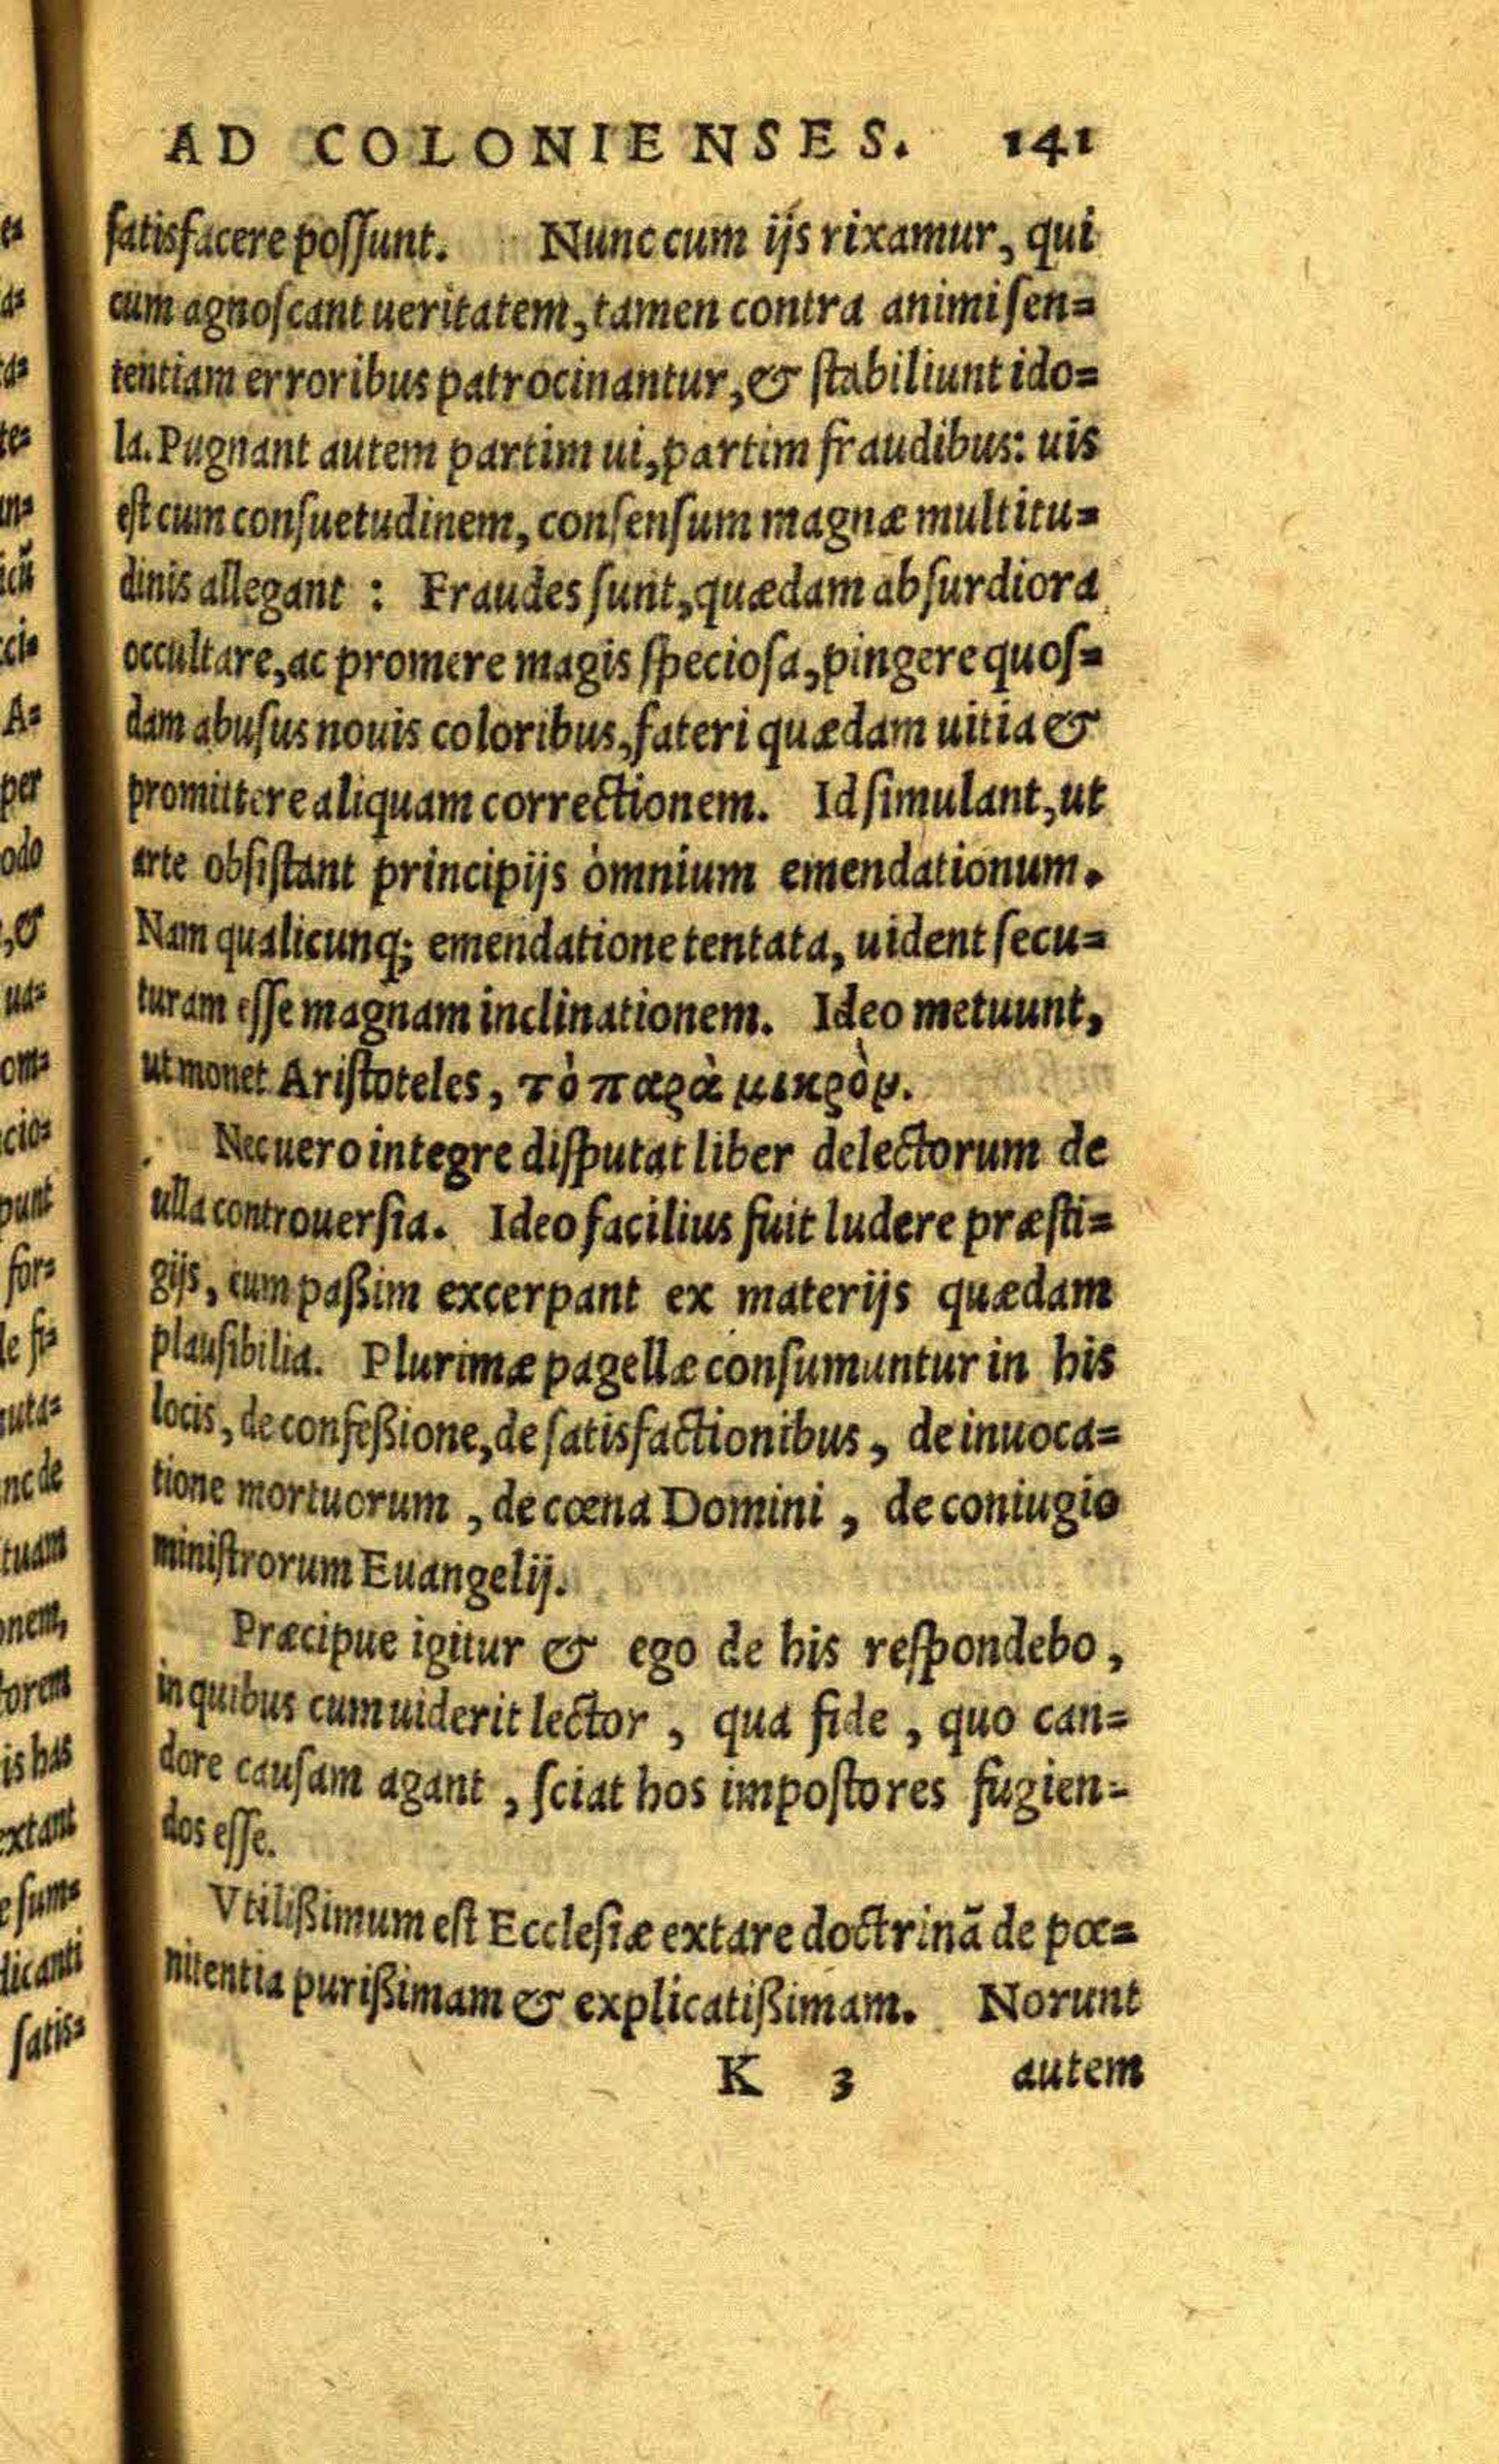 AD COLONIENSES. 141
satisfacere possunt. Nunc cum ijs rixamur, qui
cum agnoscant ueritatem, tamen contra animi sen=
tentiam erroribus patrocinantur, & stabiliunt ido=
la. Pugnant autem partim ui, partim fraudibus: uis
est cum consuetudinem, consensum magnæ multitu=
dinis allegant : Fraudes sunt, quædam absurdiora
occultare, ac promere magis speciosa, pingere quos=
dam abusus nouis coloribus, fateri quædam uitia &
promittere aliquam correctionem. Id simulant, ut
arte obsistant principijs omnium emendationum.
Nam qualicunq; emendatione tentata, uident secu=
turam esse magnam inclinationem. Ideo metuunt,
ut monet Aristoteles, τὸ παρὰ μικρὸν.
Nec uero integre disputat liber delectorum de
ulla controuersia. Ideo facilius fuit ludere præsti=
gijs, cum paßim excerpant ex materijs quædam
plausibilia. Plurimæ pagellæ consumuntur in his
locis, de confeßione, de satisfactionibus, de inuoca=
tione mortuorum, de cœna Domini, de coniugio
ministrorum Euangelij.
Præcipue igitur & ego de his respondebo,
in quibus cum uiderit lector, qua fide, quo can=
dore causam agant, sciat hos impostores fugien=
dos esse.
Vtilißimum est Ecclesiæ extare doctrinã de pœ=
nitentia purißimam & explicatißimam. Norunt
K 3 autem